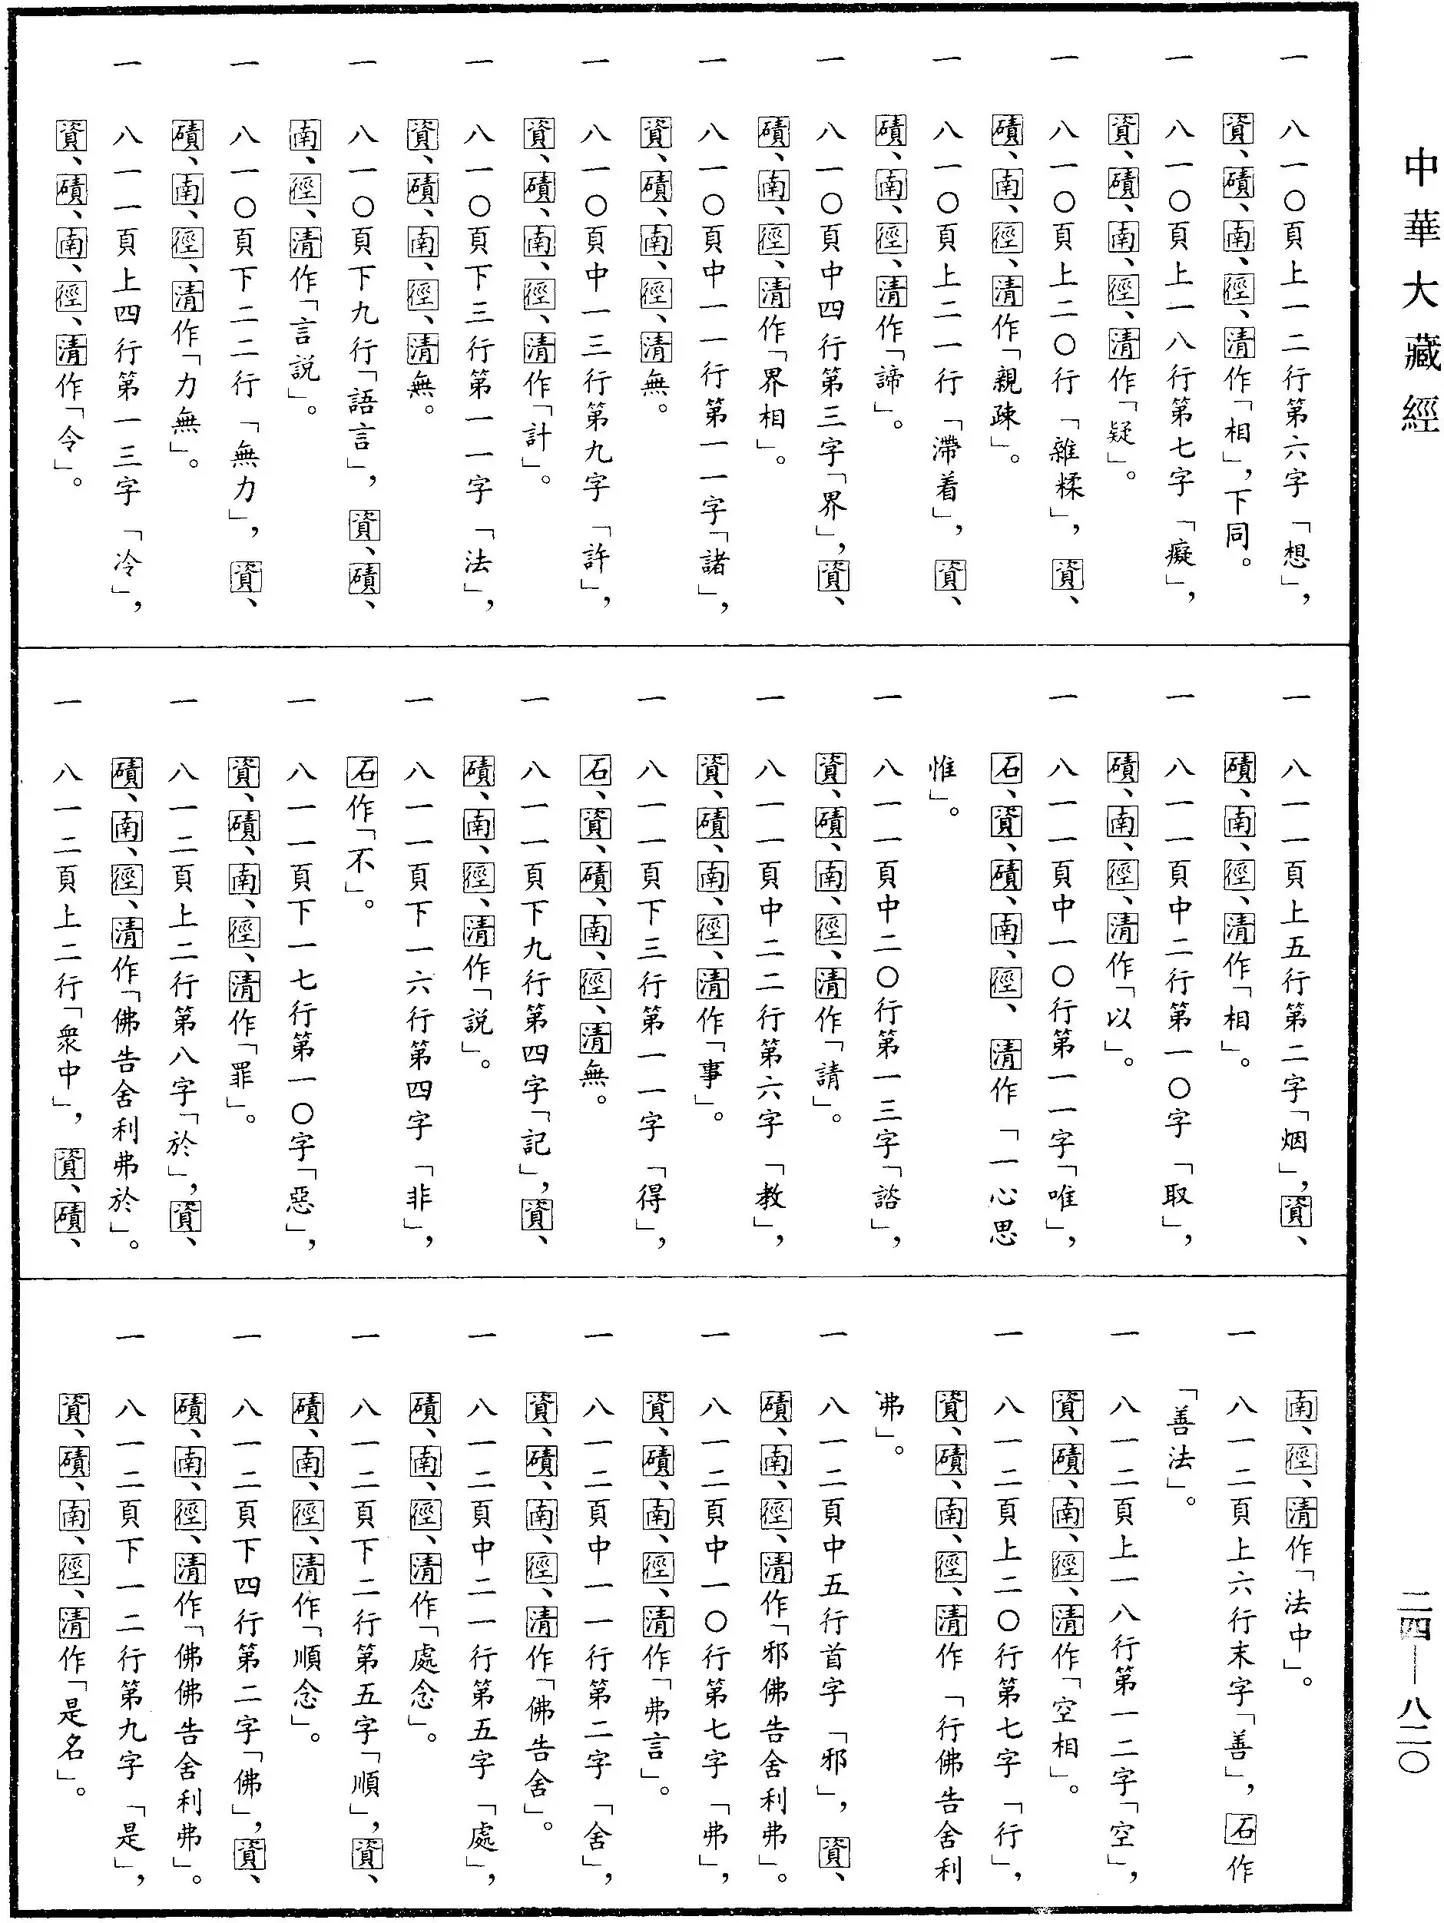 中華大藏經
一　八一〇頁上一二行第六字「想」，
資、磧、南、徑、清作「相」，下同。
一　八一〇頁上一八行第七字「癡」，
資、磧、南、徑、清作「疑」。
一　八一〇頁上二〇行「雜糅」，資、
磧、南、徑、清作「親疎」。
一　八一〇頁上二一行「滯着」，資、
磧、南、徑、清作「諦」。
一　八一〇頁中四行第三字「界」，資、
磧、南、徑、清作「界相」。
一　八一〇頁中一一行第一一字「諸」，
資、磧、南、徑、清無。
一　八一〇頁中一三行第九字「許」，
資、磧、南、徑、清作「計」。
一　八一〇頁下三行第一一字「法」，
資、磧、南、徑、清無。
一　八一〇頁下九行「語言」，資、磧、
南、徑、清作「言説」。
一　八一〇頁下二二行「無力」，資、
磧、南、徑、清作「力無」。
一　八一一頁上四行第一三字「冷」，
資、磧、南、徑、清作「令」。
一　八一一頁上五行第二字「烟」，資、
磧、南、徑、清作「相」。
一　八一一頁中二行第一〇字「取」，
磧、南、徑、清作「以」。
一　八一一頁中一〇行第一一字「唯」，
石、資、磧、南、徑、清作「一心思
惟」。
一　八一一頁中二〇行第一三字「諮」，
資、磧、南、徑、清作「請」。
一　八一一頁中二二行第六字「教」，
資、磧、南、徑、清作「事」。
一　八一一頁下三行第一一字「得」，
石、資、磧、南、徑、清無。
一　八一一頁下九行第四字「記」，資、
磧、南、徑、清作「説」。
一　八一一頁下一六行第四字「非」，
石作「不」。
一　八一一頁下一七行第一〇字「惡」，
資、磧、南、徑、清作「罪」。
一　八一二頁上二行第八字「於」，資、
磧、南、徑、清作「佛告舍利弗於」。
一　八一二頁上二行「衆中」，資、磧、
南、徑、清作「法中」。
一　八一二頁上六行末字「善」，石作
「善法」。
一　八一二頁上一八行第一二字「空」，
資、磧、南、徑、清作「空相」。
一　八一二頁上二〇行第七字「行」，
資、磧、南、徑、清作「行佛告舍利
弗」。
一　八一二頁中五行首字「邪」，資、
磧、南、徑、清作「邪佛告舍利弗」。
一　八一二頁中一〇行第七字「弗」，
資、磧、南、徑、清作「弗言」。
一　八一二頁中一一行第二字「舍」，
資、磧、南、徑、清作「佛告舍」。
一　八一二頁中二一行第五字「處」，
磧、南、徑、清作「處念」。
一　八一二頁下二行第五字「順」，資、
磧、南、徑、清作「順念」。
一　八一二頁下四行第二字「佛」，資、
磧、南、徑、清作「佛佛告舍利弗」。
一　八一二頁下一二行第九字「是」，
資、磧、南、徑、清作「是名」。
二四—八二〇